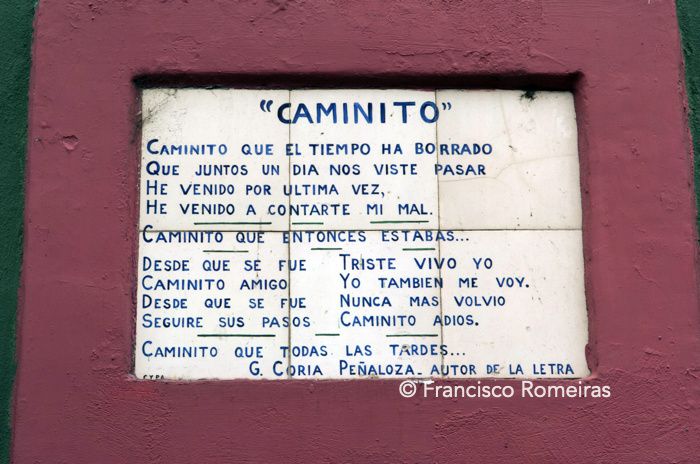 "CAMINITO"
CAMINITO QUE EL TIEMPO HA BORRADO
QUE JUNTOS UN DIA NOS VISTE PASAR
HE VENIDO POR ULTIMA VEZ,
HE VENIDO A CONTARTE MI MAL.
CAMINITO QUE ENTONCES ESTABAS...
DESDE QUE SE FUE TRISTE VIVO YO
CAMINITO AMIGO YO TAMBIEN ME VOY.
DESDE QUE SE FUE NUNCA MAS VOLVIO
SEGUIRE SUS PASOS CAMINITO ADIOS.
CAMINITO QUE TODAS LAS TARDES...
G. CORIA PEÑALOZA. AUTOR DE LA LETRA
© Francisco Romeiras